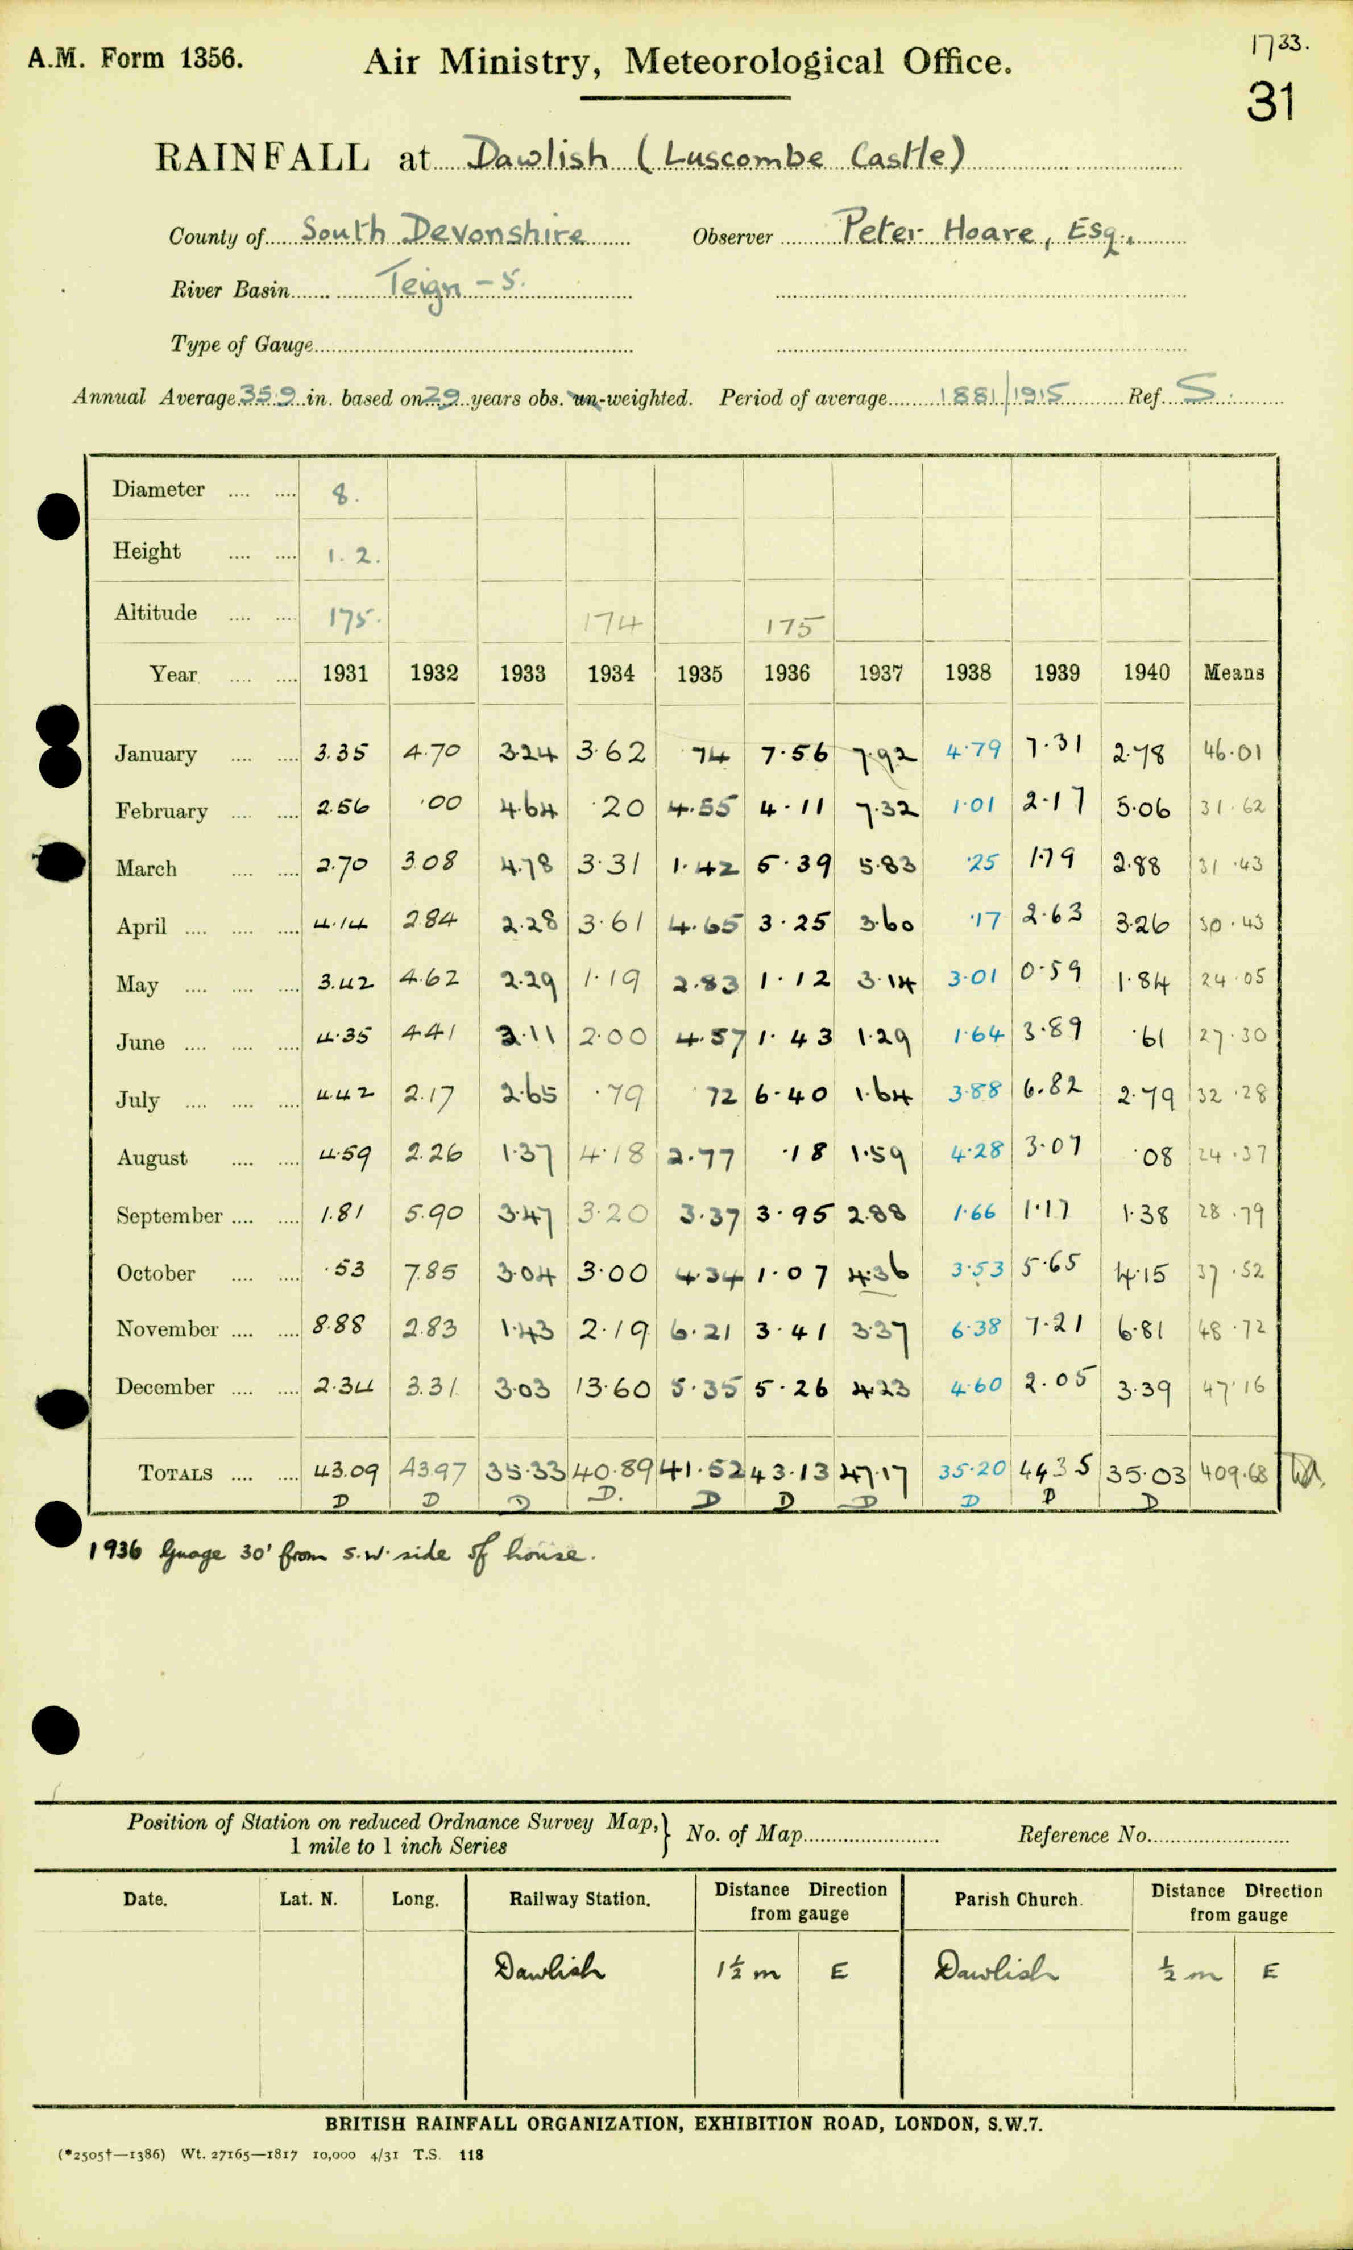 1733.
A.M. Form 1356. Air Ministry, Meteorological Office.
31
RAINFALL at Dawlish (Luscombe Castle)
County of South Devonshire Observer Peter Hoare, Esq.
River Basin Teign - 5.
Type of Gauge
Annual Average 35.9 in. based on 29 years obs. un-weighted. Period of average 1881/1915 Ref. S.
Diameter 8.
Height 1. 2.
Altitude 175. 174 175
Year 1931 1932 1933 1934 1935 1936 1937 1938 1939 1940 Means
January 3.35 4.70 3.24 3.62 74 7.56 7.92 4.79 7.31 2.78 46.01
February 2.56 .00 4.64 .20 4.55 4.11 7.32 1.01 2.17 5.06 31.62
March 2.70 3.08 4.78 3.31 1.42 5.39 5.83 .25 1.79 2.88 31.43
April 4.14 2.84 2.28 3.61 4.65 3.25 3.60 .17 2.63 3.26 30.43
May 3.42 4.62 2.29 1.19 2.83 1.12 3.14 3.01 0.59 1.84 24.05
June 4.35 4.41 3.11 2.00 4.57 1.43 1.29 1.64 3.89 .61 27.30
July 4.42 2.17 2.65 .79 72 6.40 1.64 3.88 6.82 2.79 32.28
August 4.59 2.26 1.37 4.18 2.77 .18 1.59 4.28 3.07 .08 24.37
September 1.81 5.90 3.47 3.20 3.37 3.95 2.88 1.66 1.17 1.38 28.79
October .53 7.85 3.04 3.00 4.34 1.07 4.36 3.53 5.65 4.15 37.52
November 8.88 2.83 1.43 2.19 6.21 3.41 3.37 6.38 7.21 6.81 48.72
December 2.34 3.31 3.03 13.60 5.35 5.26 4.23 4.60 2.05 3.39 47.16
TOTALS 43.09 43.97 35.33 40.89 41.52 43.13 47.17 35.20 44.35 35.03 409.68
D D D D. D D D D D D
1936 Guage 30' from S.W. side of house.
Position of Station on reduced Ordnance Survey Map, } No. of Map Reference No.
1 mile to 1 inch Series
Date. Lat. N. Long. Railway Station. Distance Direction from gauge Parish Church. Distance Direction from gauge
Dawlish 1½ m E Dawlish ½ m E
BRITISH RAINFALL ORGANIZATION, EXHIBITION ROAD, LONDON, S.W.7.
(*2505†—1386) Wt. 27165—1817 10,000 4/31 T.S. 118